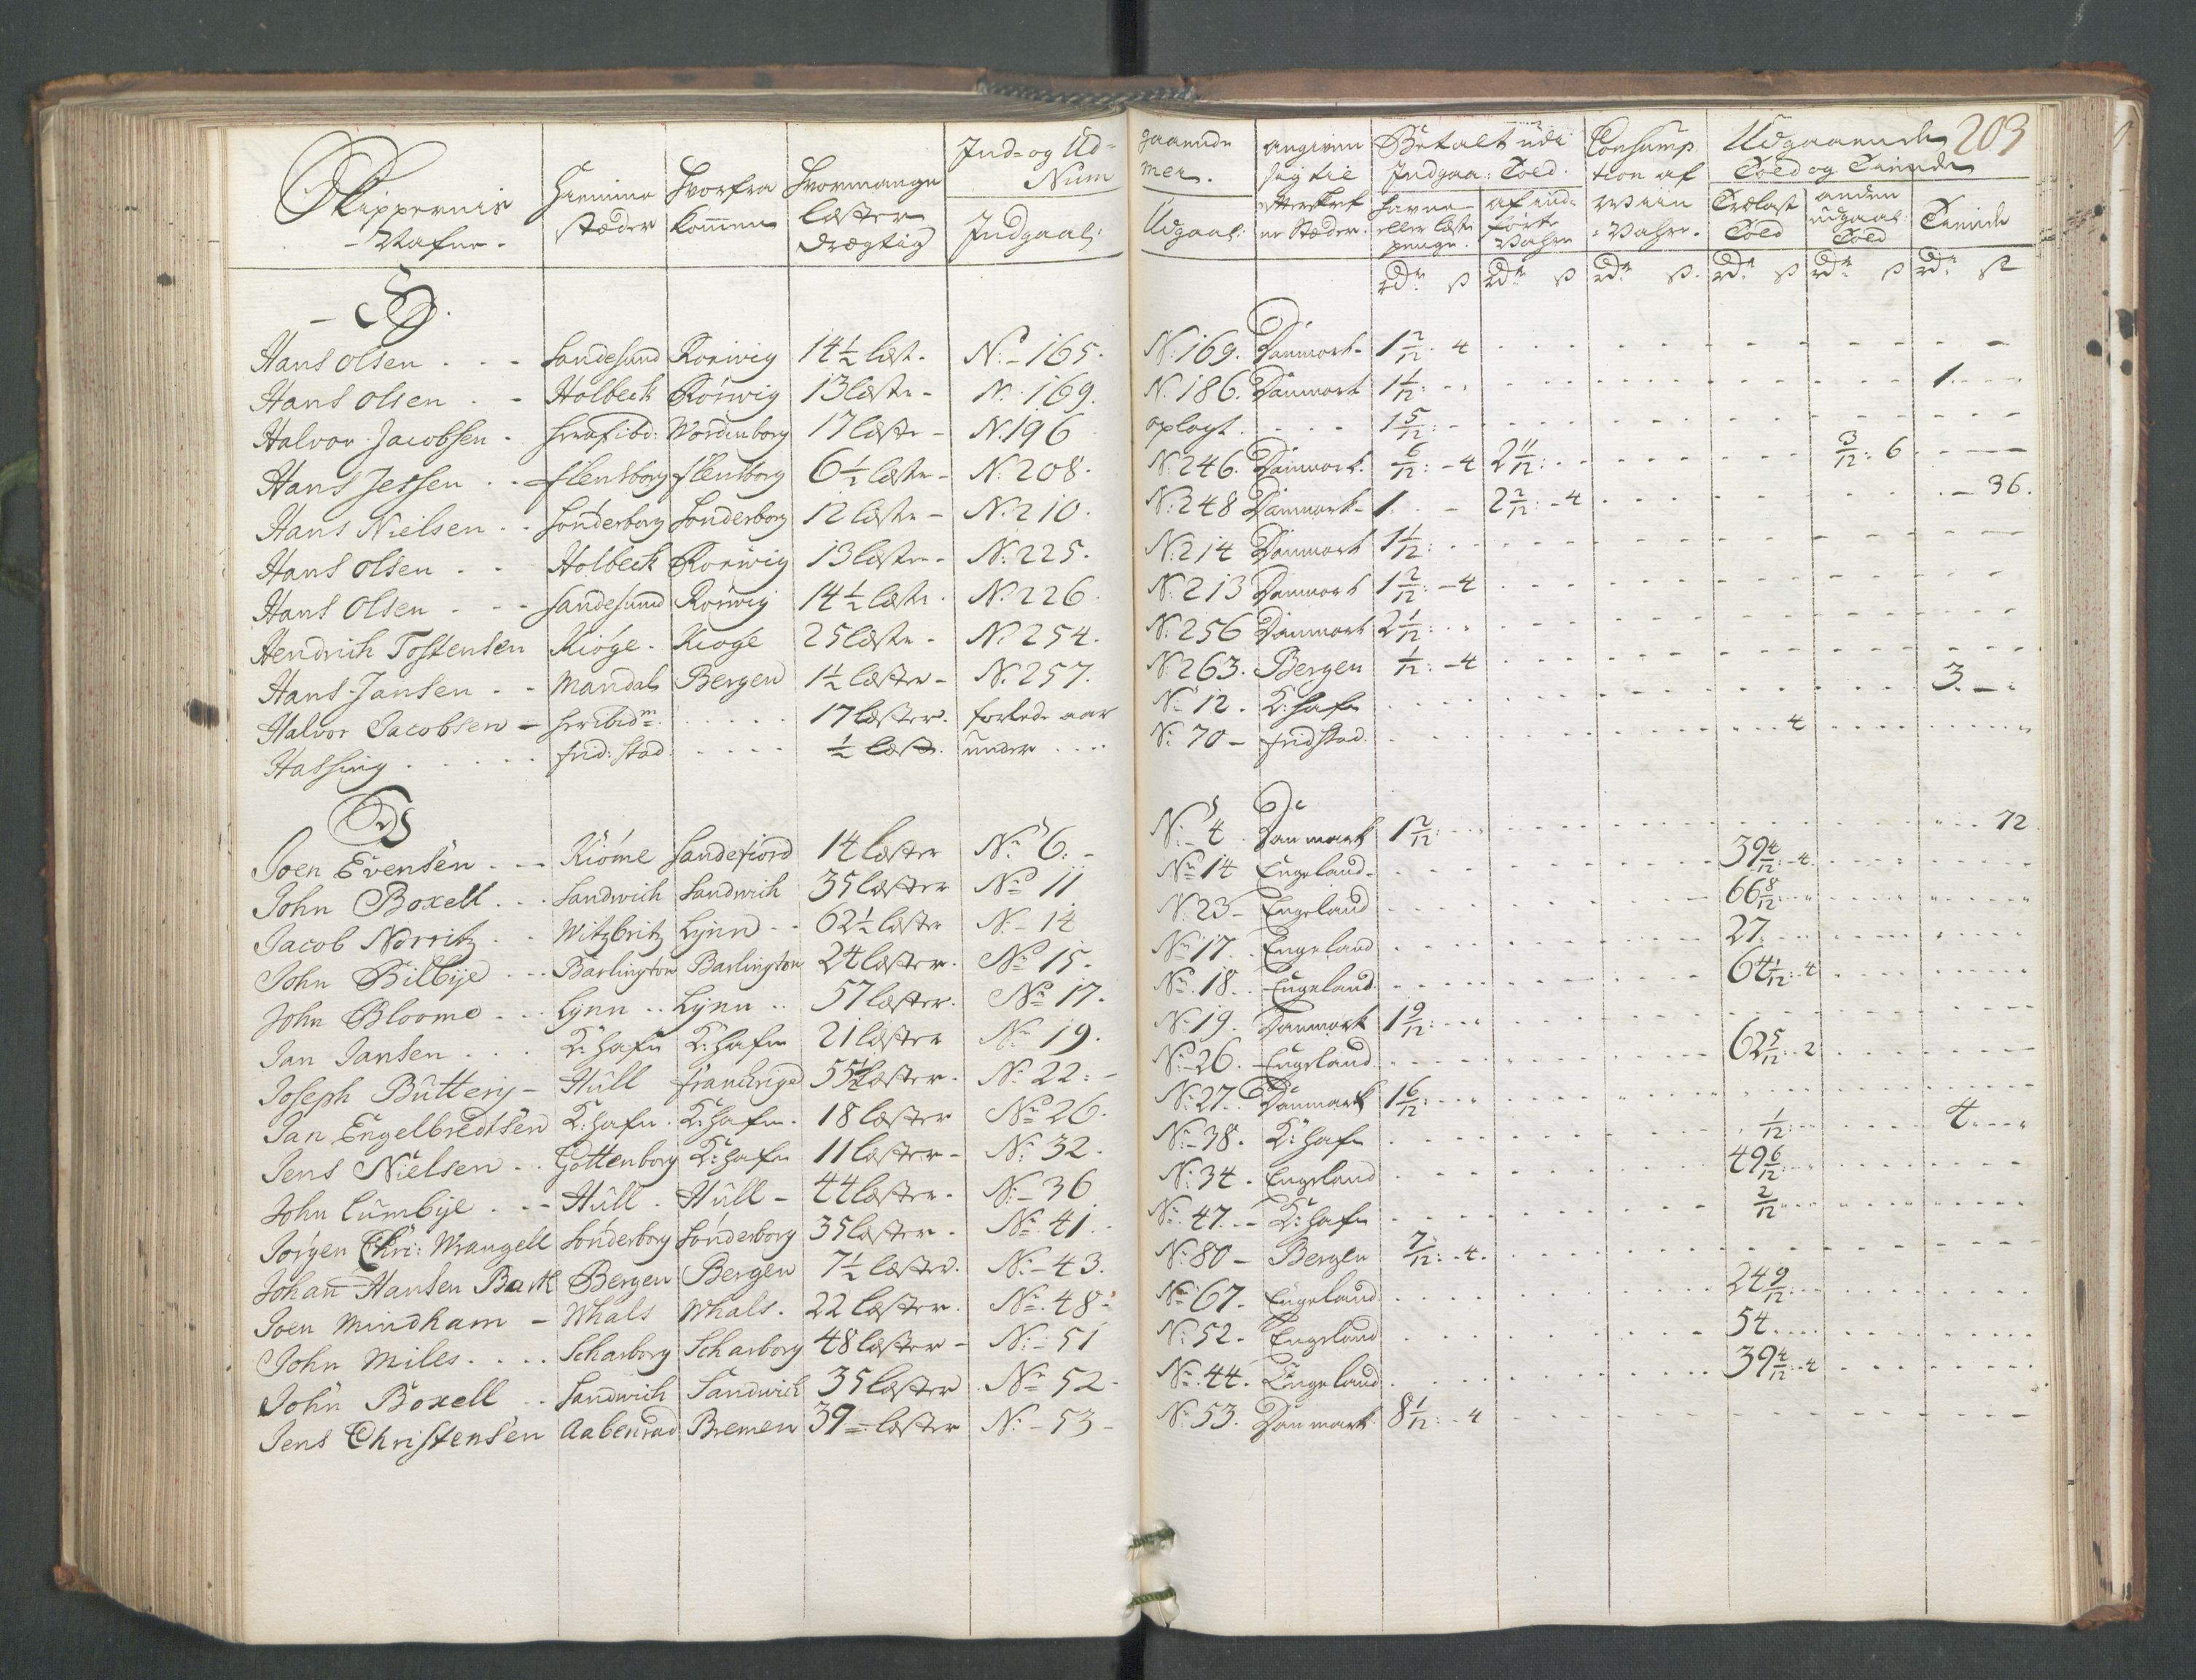 203
Skippernis Nafne. Hiemme stæder Hvorfra kommen Hvormange læster drægtig Ind- og Ud- Num Indgaal:
gaaende mer. Udgaal: angiven sig til Betalt udi Indgaa: Told. Havne eller læste penge. af ind- førte Vahre Consump tion af Wiin Vahre. Udgaaende Told og Tiende Trælast Told anden udgaal: Told Tiende
H.
Hans Olsen . . - Sandesund Roeiwig 14½ læst. N: 165. N: 169. Danmark 1 2/12 - 4
Hans Olsen . - Holbeck Röswig 13 læste - N: 169. N. 186. Danmark 1 1/12: - 1.
Halvor Jacobsen . Wordenborg 17 læste - N. 196 oplagt. 1 5/12: -
Hans Jessen . . Flensborg Flensborg 6½ læste - N: 208. N: 246. Danmark. 6/12: - 4 2 11/12: 3/12: 6
Hans Nielsen . . Sönderborg Sönderborg 12 læste - N: 210. N: 248 Danmark - 1. . - 2 2/12: - 4 - 36.
Hans Olsen . . Holbeck Roeiwig 13 læste - N: 225. N: 214 Danmark 1 1/12:
Hans Olsen . . - Sandesund Roeiwig 14½ læste. N: 226. N: 213 Danmark 1 2/12: - 4
Hendrich Tostensen Kiöge. Kiöge 25 læste - N: 254. N: 256 Danmark 2 1/12:
Hans Jansen . - Mandals Bergen 1½ læster - N: 257. N: 263. Bergen 1/12: - 4
Halvor Jacobsen - 17 læster. forlede aar N: 12. K: hafn 3. -
Hassing . . . . . Frid: stad . . . . ½ læst. under . . . . N: 70 - Fridstad. 4
J
Joen Evensen . . - Kiöme Sandefiord 14 læster No 6. - N: 4 Danmark 1 2/12: 72
John Boxell . . . Sandwich Sandwich 35 læster No 11 No 14 Engeland. 39 4/12: - 4.
Jacob Norritz . . Witzbritz Lynn . . 62½ læster N: - 14 N: 23 - Engeland 66 8/12:
John Bilbÿe . . . Barlington Barlington 24 læster. No 15. No 17. Engeland 27.
John Bloome . . . Lynn . . Lynn . . 57 læster. No 17. No 18. Engeland. 64 1/12: 4
Jan Jansen . . . K: hafn K: hafn 21 læster No 19. No 19. Danmark 1 9/12:
Joseph Buttery - Hull 55½ læster. N: 22: - N: - 26. Engeland 62 5/12: 2
Jan Engelbredtsen K: hafn. K: hafn. 18 læster No 26. N: 27. Danmark 1 6/12:
Jens Nielsen . . Gottenborg K: hafn 11 læster - N: 32. N: - 38. K: hafn 1/12: 4.
John Lumbÿe . . - Hull . Hull - 44 læster. N: - 36 N: 34. Engeland 49 6/12:
Jörgen Chri: Wrangell Sönderborg Sönderborg 35 læster. No 41. No 47. - K: hafn 2/12
Johan Hansen Bark Bergen Bergen 7½ læster. N: - 43. N: 80 - Bergen 7/12: - 4.
Joen Mindham - Whals Whals. 22 læster. No 48. No 67. Engeland 24 9/12:
John Miles. . . . Scharborg Scharborg 48 læster - N: - 51 N: 52. Engeland 54.
John Boxell . . Sandwich Sandwich 35 læster No 52. No 44. Engeland 39 4/12: - 4
Jens Christensen Aabenrad Bremen 39 = læster N: - 53 - No 53. Danmark. 8 1/12: - 4